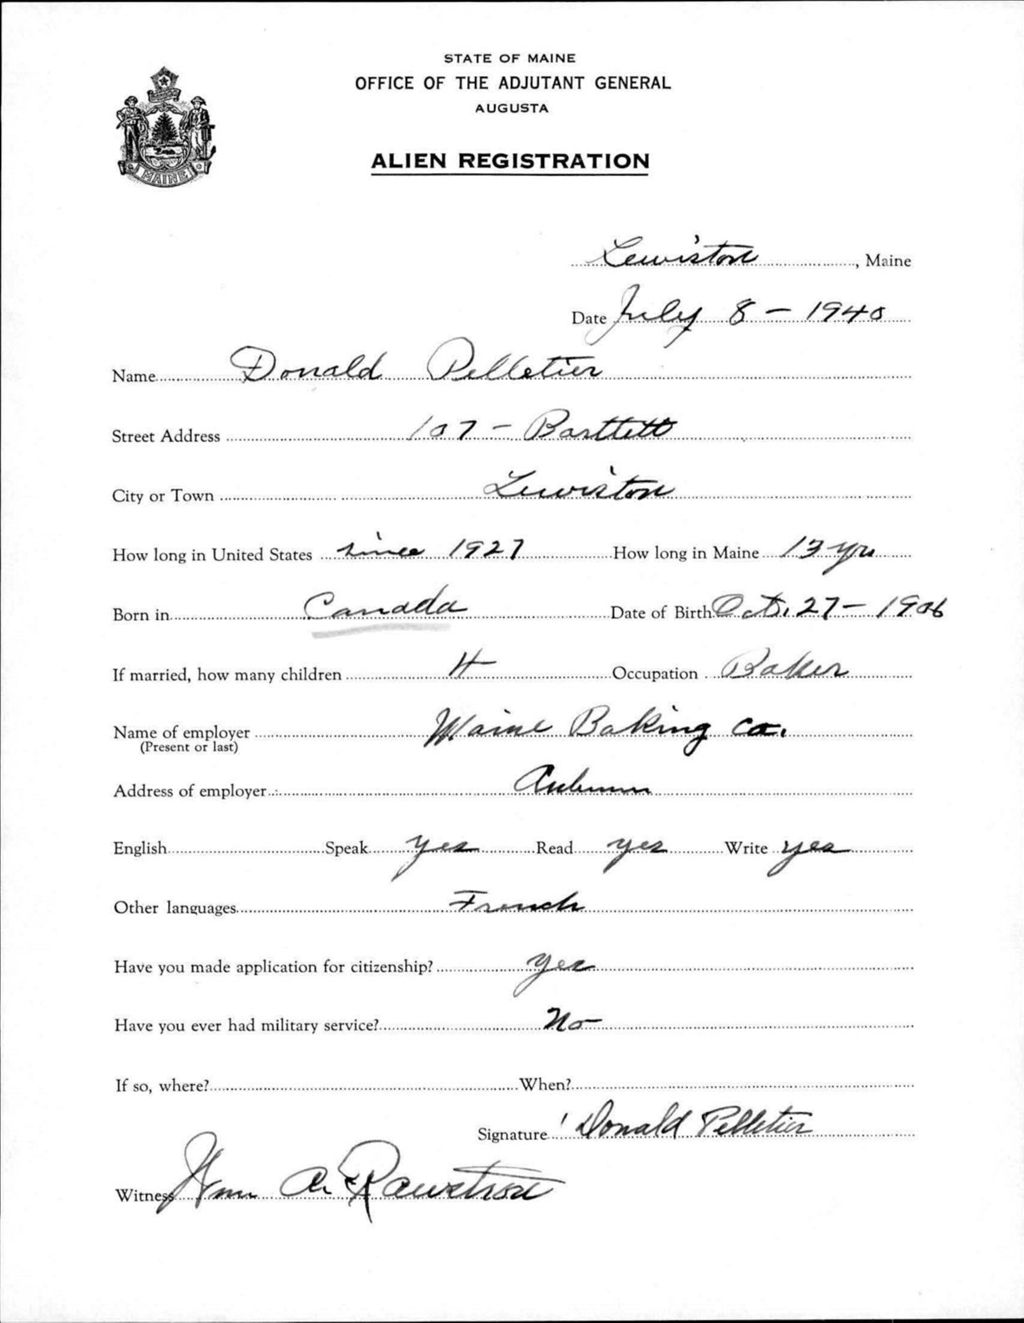 STATE OF MAINE
OFFICE OF THE ADJUTANT GENERAL
AUGUSTA
ALIEN REGISTRATION
MAINE
Lewiston, Maine
Date July 8 - 1940
Name Donald Pelletier
Street Address 107 - Bartlett
City or Town Lewiston
How long in United States since 1927 How long in Maine 13 yrs
Born in Canada Date of Birth Oct. 27 - 1906
If married, how many children 4 Occupation Baker
Name of employer Maine Baking Co.
(Present or last)
Address of employer Auburn
English Speak yes Read yes Write yes
Other languages French
Have you made application for citizenship? Yes
Have you ever had military service? No
If so, where? When?
Signature Donald Pelletier
Witness Wm A.